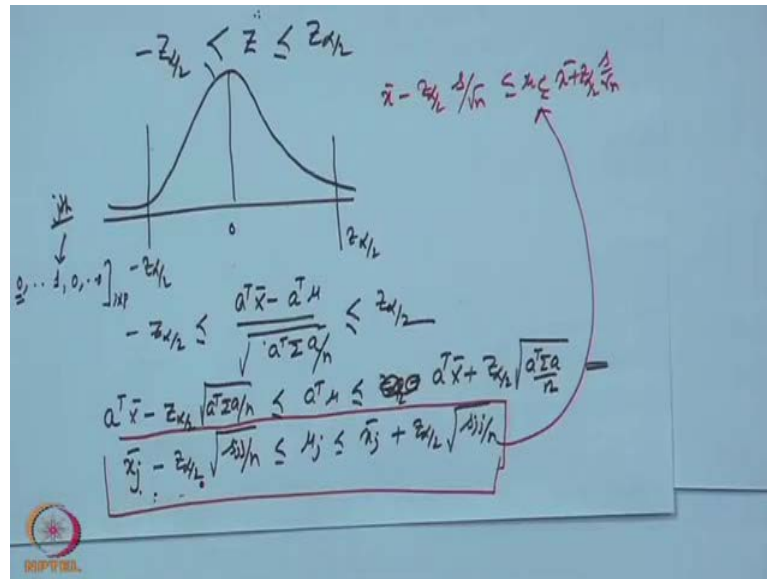 -Zα/2 < Z ≤ Zα/2
x̄ - zα/2 s/√n ≤ μ ≤ x̄ + zα/2 s/√n
jth
0, .. 1, 0, .. 0]1×p
-zα/2
0
zα/2
-zα/2 ≤ (aᵀx̄ - aᵀμ) / √(aᵀΣa/n) ≤ zα/2
aᵀx̄ - zα/2 √(aᵀΣa/n) ≤ aᵀμ ≤ aᵀx̄ + zα/2 √(aᵀΣa/n)
x̄j - zα/2 √(sjj/n) ≤ μj ≤ x̄j + zα/2 √(sjj/n)
NPTEL